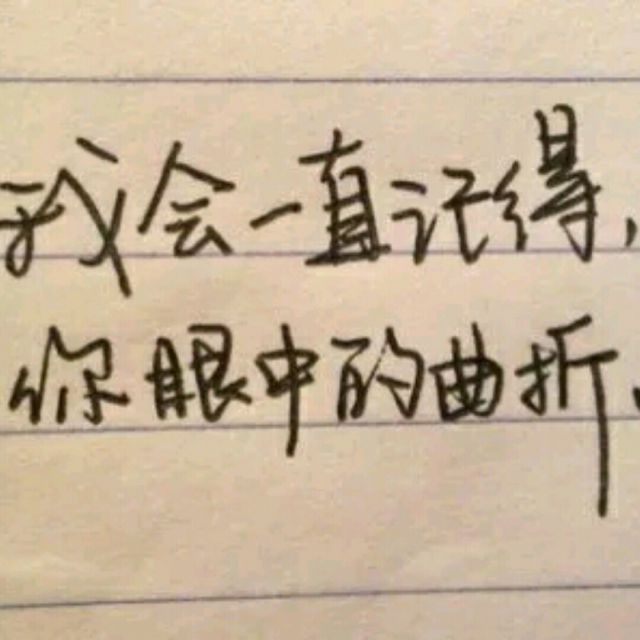 我会一直记得,
你眼中的曲折、